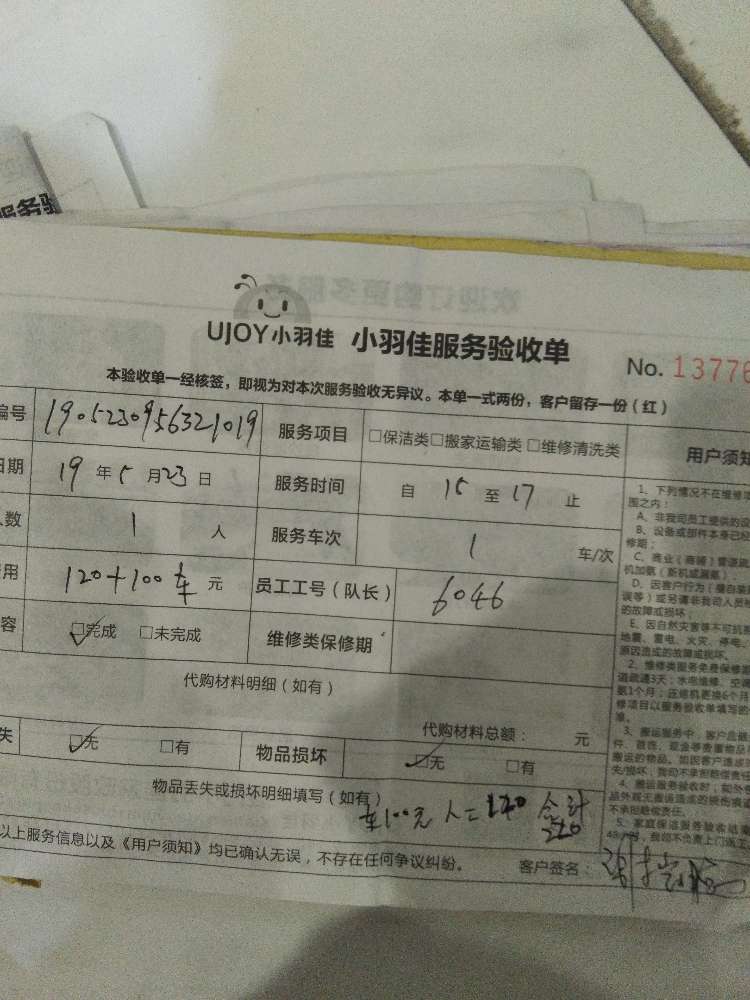 服务验
欢迎订购更多服务
UJOY小羽佳 小羽佳服务验收单
No. 13776
本验收单一经核签，即视为对本次服务验收无异议。本单一式两份，客户留存一份（红）
编号 1905230956321019 服务项目 □保洁类□搬家运输类□维修清洗类 用户须知
日期 19年5月23日 服务时间 自 15 至 17 止
人数 1 人 服务车次 1 车/次
用 120+100车 元 员工工号（队长） 6046
容 □完成 □未完成 维修类保修期
代购材料明细（如有）
代购材料总额： 元
失 □无 □有 物品损坏 □无 □有
物品丢失或损坏明细填写（如有）
车100元 人=120 合计
220
以上服务信息以及《用户须知》均已确认无误，不存在任何争议纠纷。 客户签名：
1、下列情况不在维修
围之内：
A、非我司员工提供的
B、设备或部件本身已
修期；
C、商业（商铺）管道
机加氨（新机或漏氨）
D、因客户行为（擅自
误等）或另请非我司人员
的故障或损坏
E、因自然灾害等不可抗
地震、雷电、火灾、停电、
原因造成的故障或损坏。
2、维修类服务免费保修
道疏通3天；水电维修、空
氨1个月；压缩机更换6个月
修项目以服务验收单填写的
准。
3、搬运服务中，客户应
件、首饰、现金等贵重物品
搬运的物品。如因客户造成
失/损坏，我司不承担赔偿责
4、搬运服务验收时，
品外观无搬运造成的损伤
不承担赔偿责任。
5、家庭保洁服务验收结束